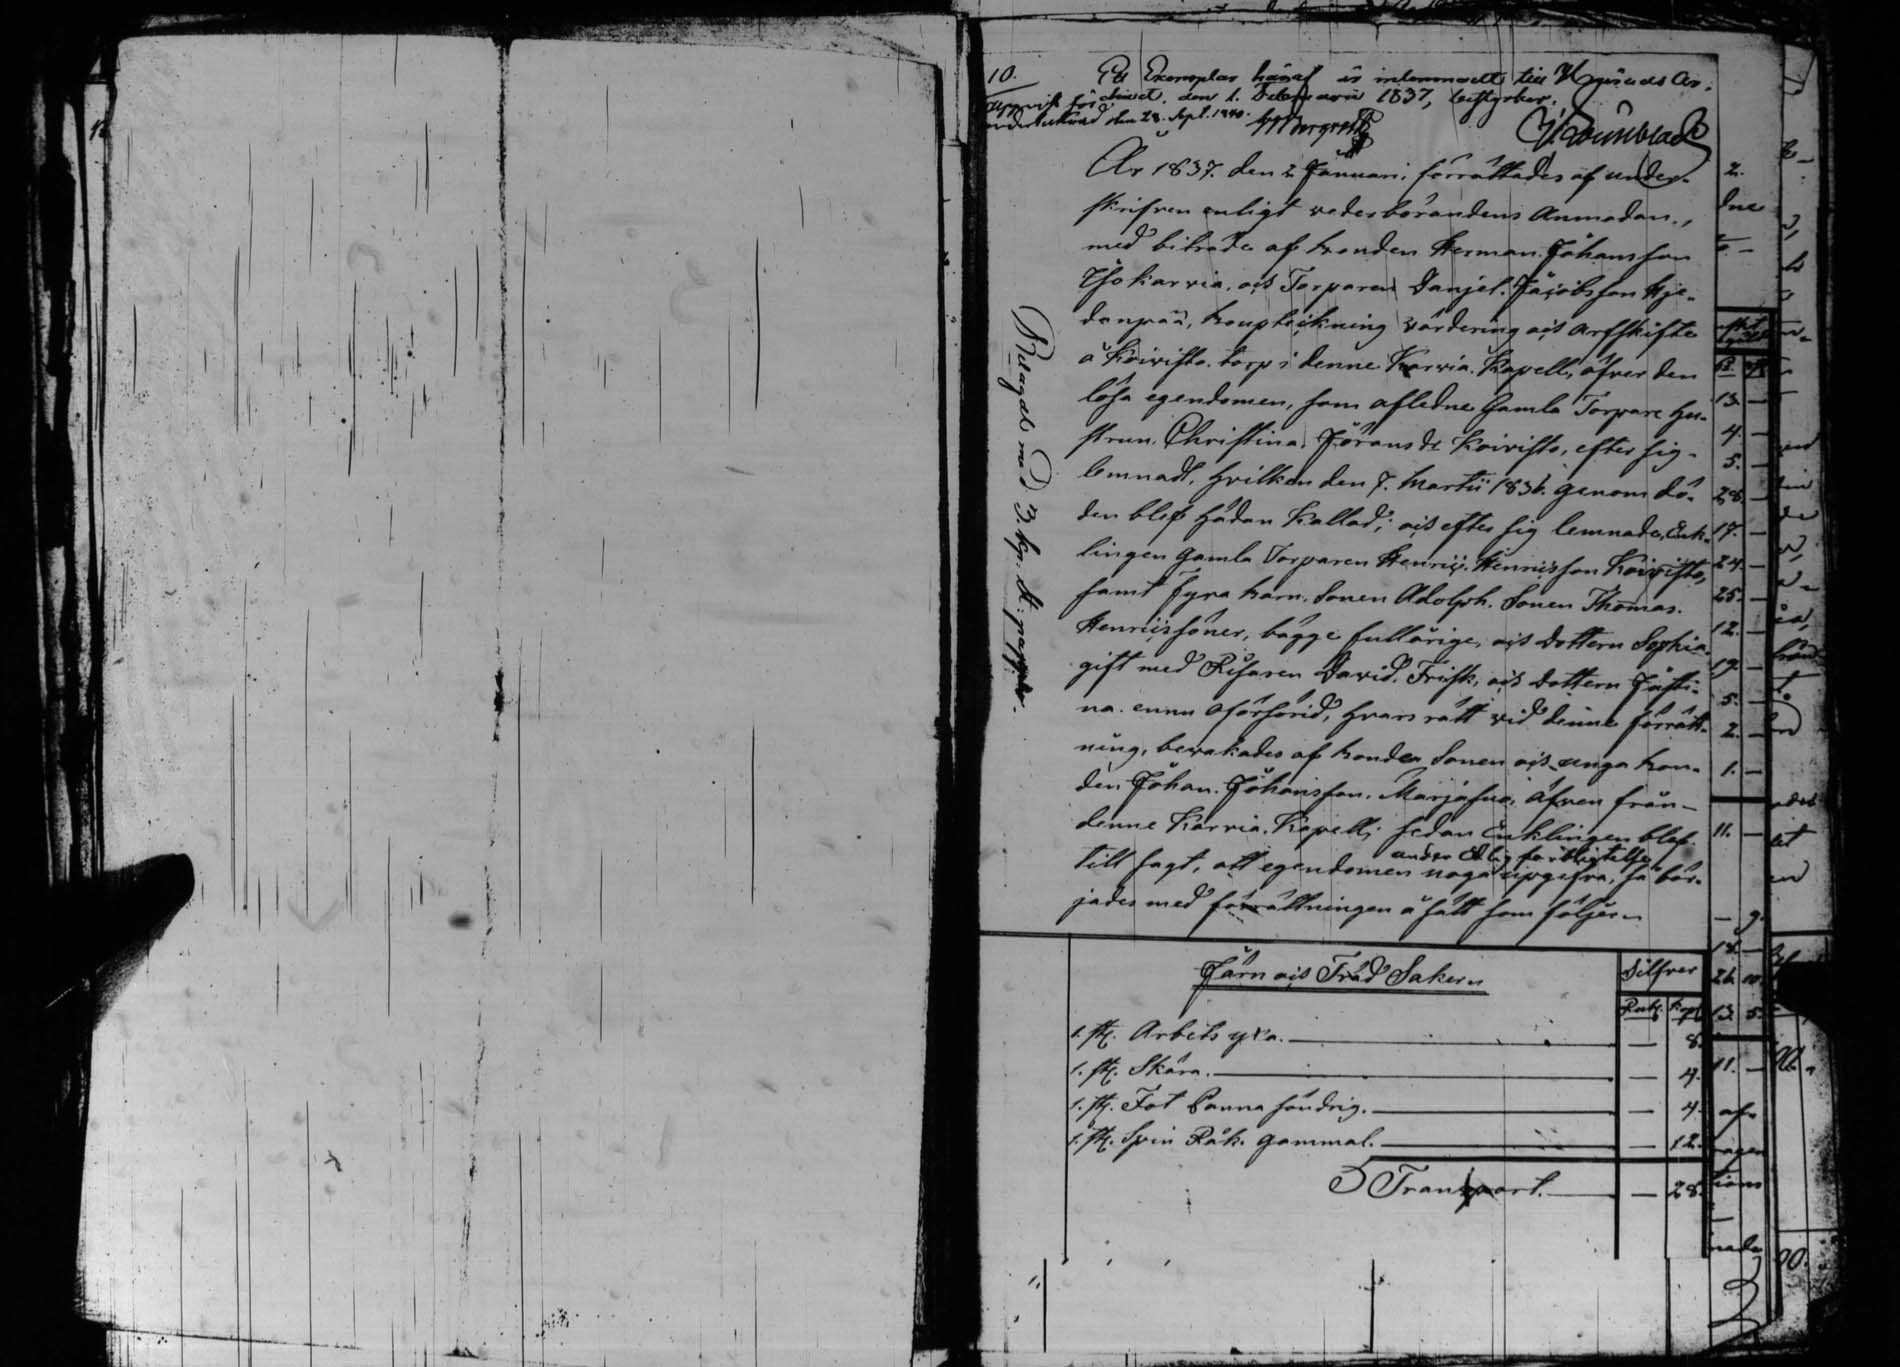 10.
Ett Exemplar häraf är inlemnadt till Häradsar-
chivet, den 1. Februarii 1837, bettyrker.
Uppvist för
den 28. Sept. 1840.
År 1837. den 2 Januari, förrättades af under-
skrifven enligt vederbörandens Anmodan.,
med biträde af bonden Herman Johansson
Ylso karvia. och Torparen Danjel. Jacobsson Kje-
danpää, boupteikning värdering och Arfskifte
å Koivisto. torp i denne Karvia. Kapell, öfver den
lösa egendomen, som afledne Gamla Torpare Hu-
strun. Christina. Jöransdr Koivisto, efter sig-
lemnadt, hvilken den 7. Martii 1836. genom dö-
den blef hädan kallad; och efter sig lemnade, Enk-
lingen gamla Torparen Henric. Henricsson Koivisto,
samt Fyra barn. Sonen Adolph. Sonen Thomas.
Henricssöner, bägge fullårige, och Dottern Sophia.
gift med Risaren David. Frisk, och Dottern Justi-
na. ennu oförsörid, hvars rätt vid denne förrätt-
ning, bevakades af bonden Sonen och unga bon-
den Johan. Johansson. Marjasuo, äfven från-
denne Karvia. Kapell; sedan Enklingen blef.
under Edlig förbligtelse
till sagt, att egendomen noga uppgifva, så bör-
jades med förrättningen å sätt som följer.
Belagdt med 3. kp. St: papper.
Järn och Träd Saker
Silfver
Rub. Kop.
1. st. Arbets yxa. — 8.
1. st. Skära. — 4.
1. st. Fot Panna söndrig. — 4.
1. st. Spin Råk. gammal. — 12.
Transport. — 28.